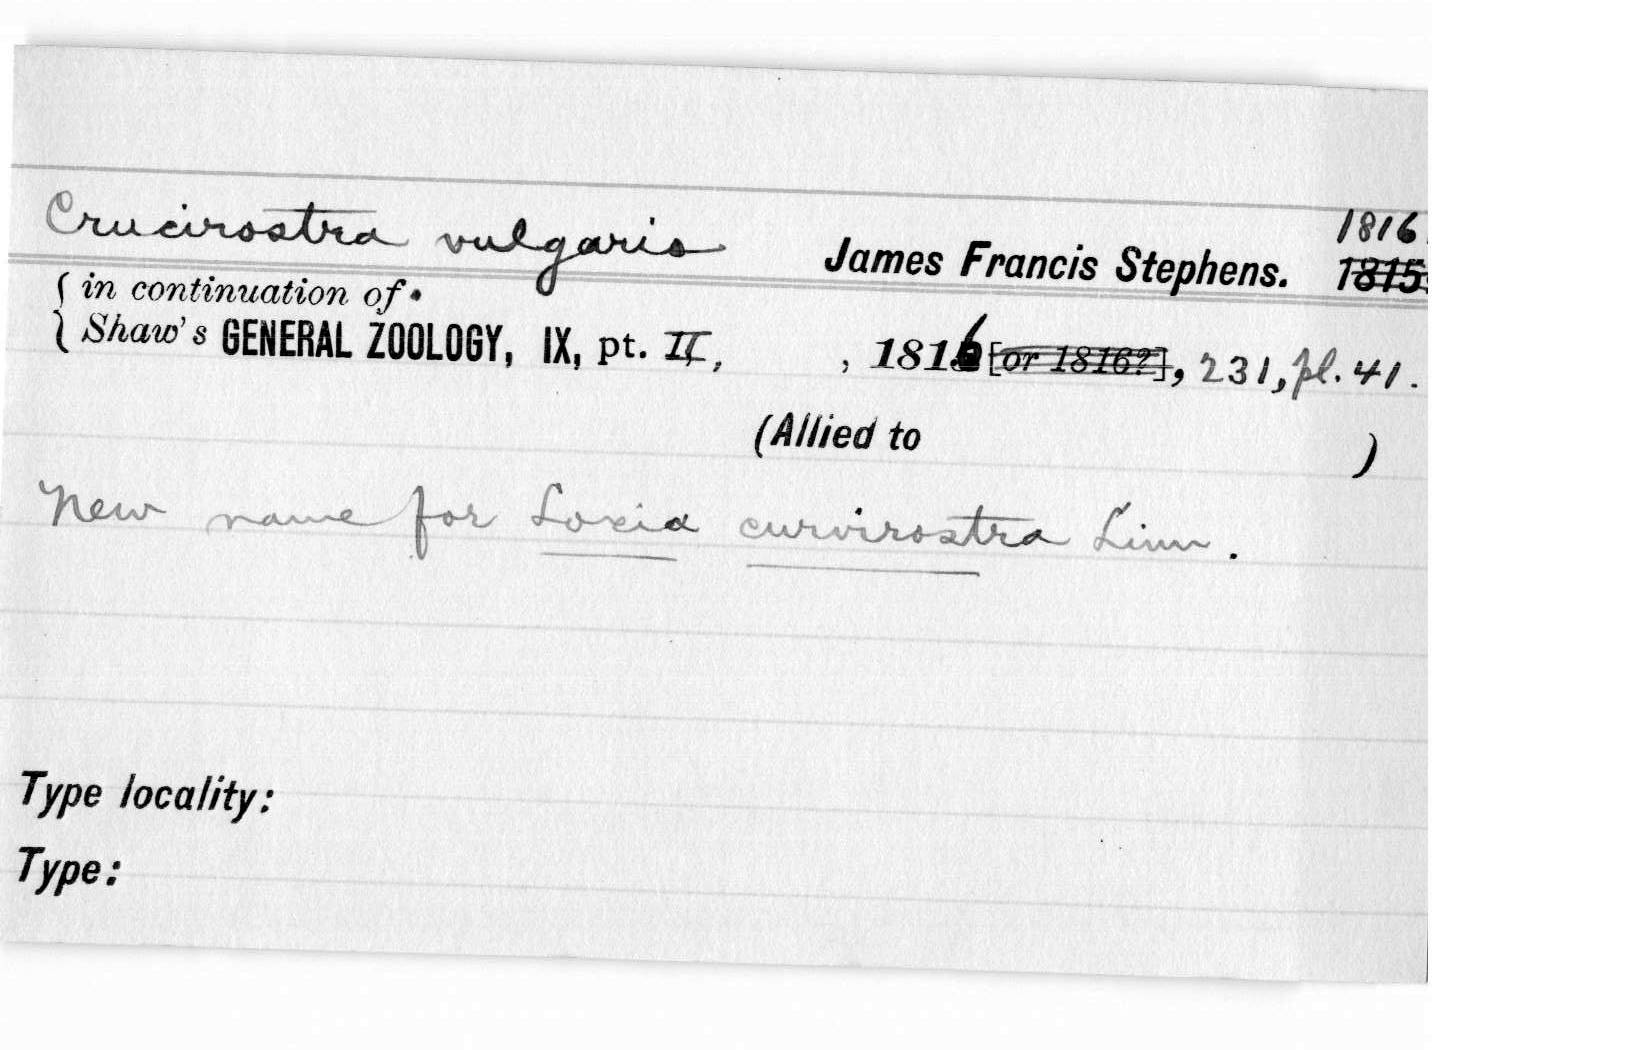 1816
Crucirostra vulgaris James Francis Stephens. 1815.
in continuation of
Shaw's GENERAL ZOOLOGY, IX, pt. II, , 1816 [or 1816?], 231, pl. 41.
(Allied to )
New name for Loxia curvirostra Linn.
Type locality:
Type: